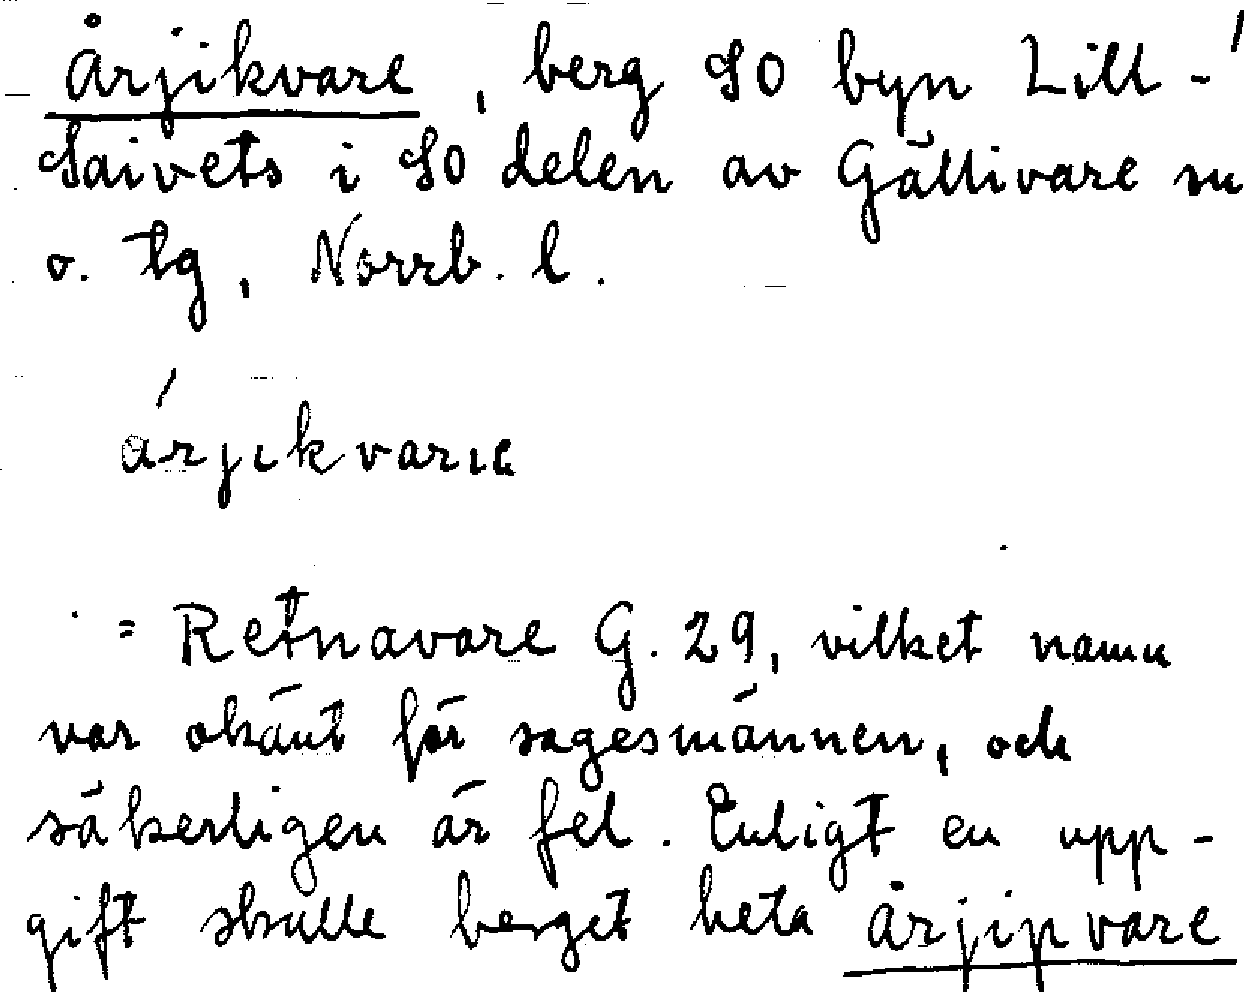 Årjikvare, berg SO byn Lill-
Saivets i SO delen av Gällivare sn
o. tg, Norrb. l.
árjıkvarıε
= Retnavare G. 29, vilket namn
var okänt för sagesmännen, och
säkerligen är fel. Enligt en upp-
gift skulle berget heta Årjipvare